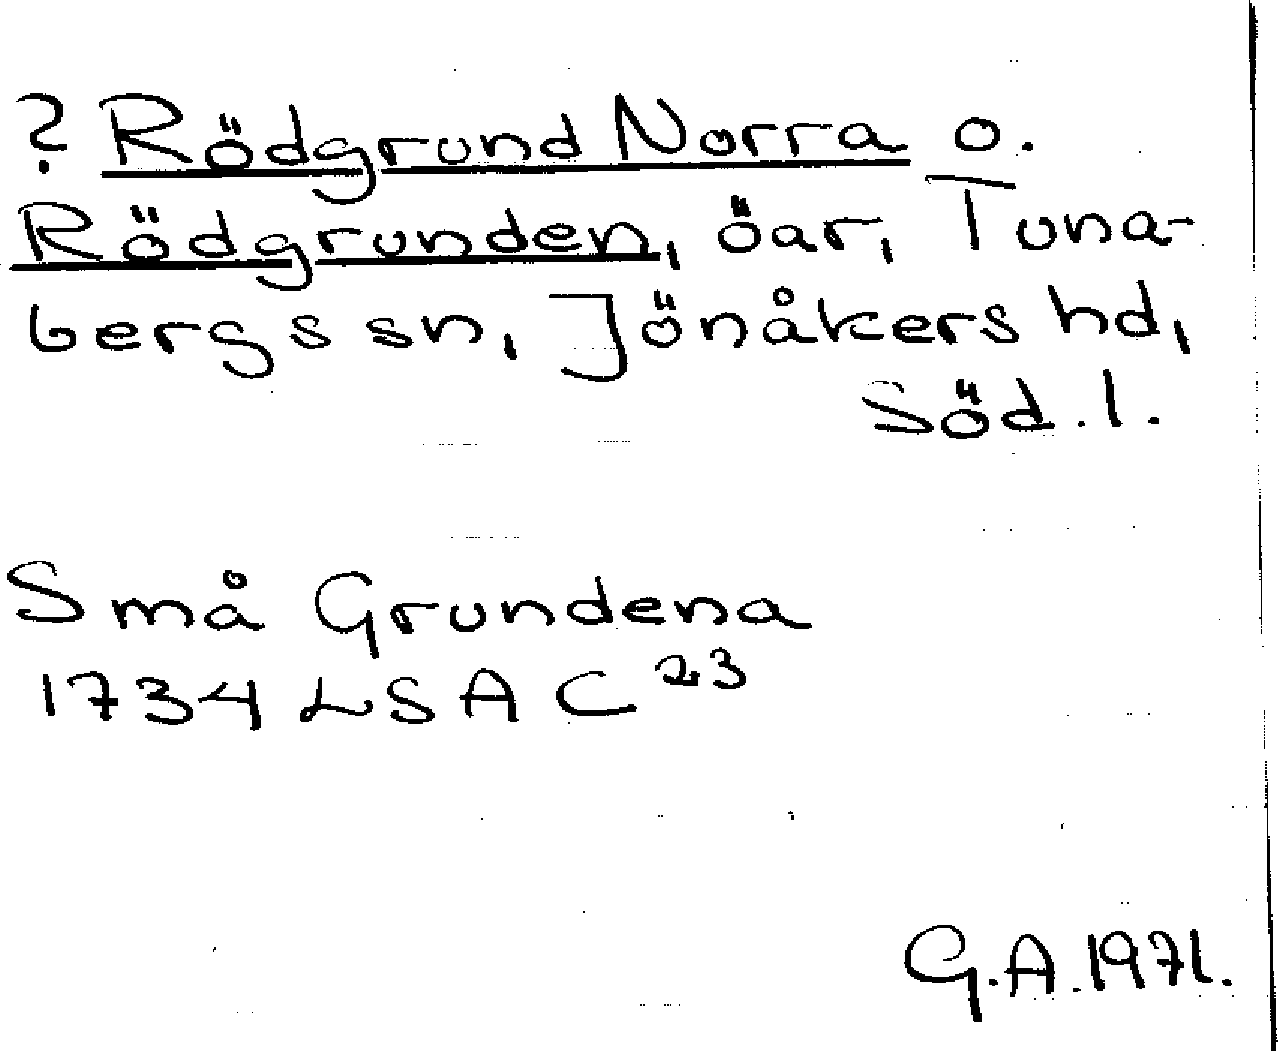 ? Rödgrund Norra o.
Rödgrunden, öar, Tuna-
bergs sn, Jönåkers hd,
Söd.l.
Små Grundena
1734 LSA C 23
G.A. 1971.